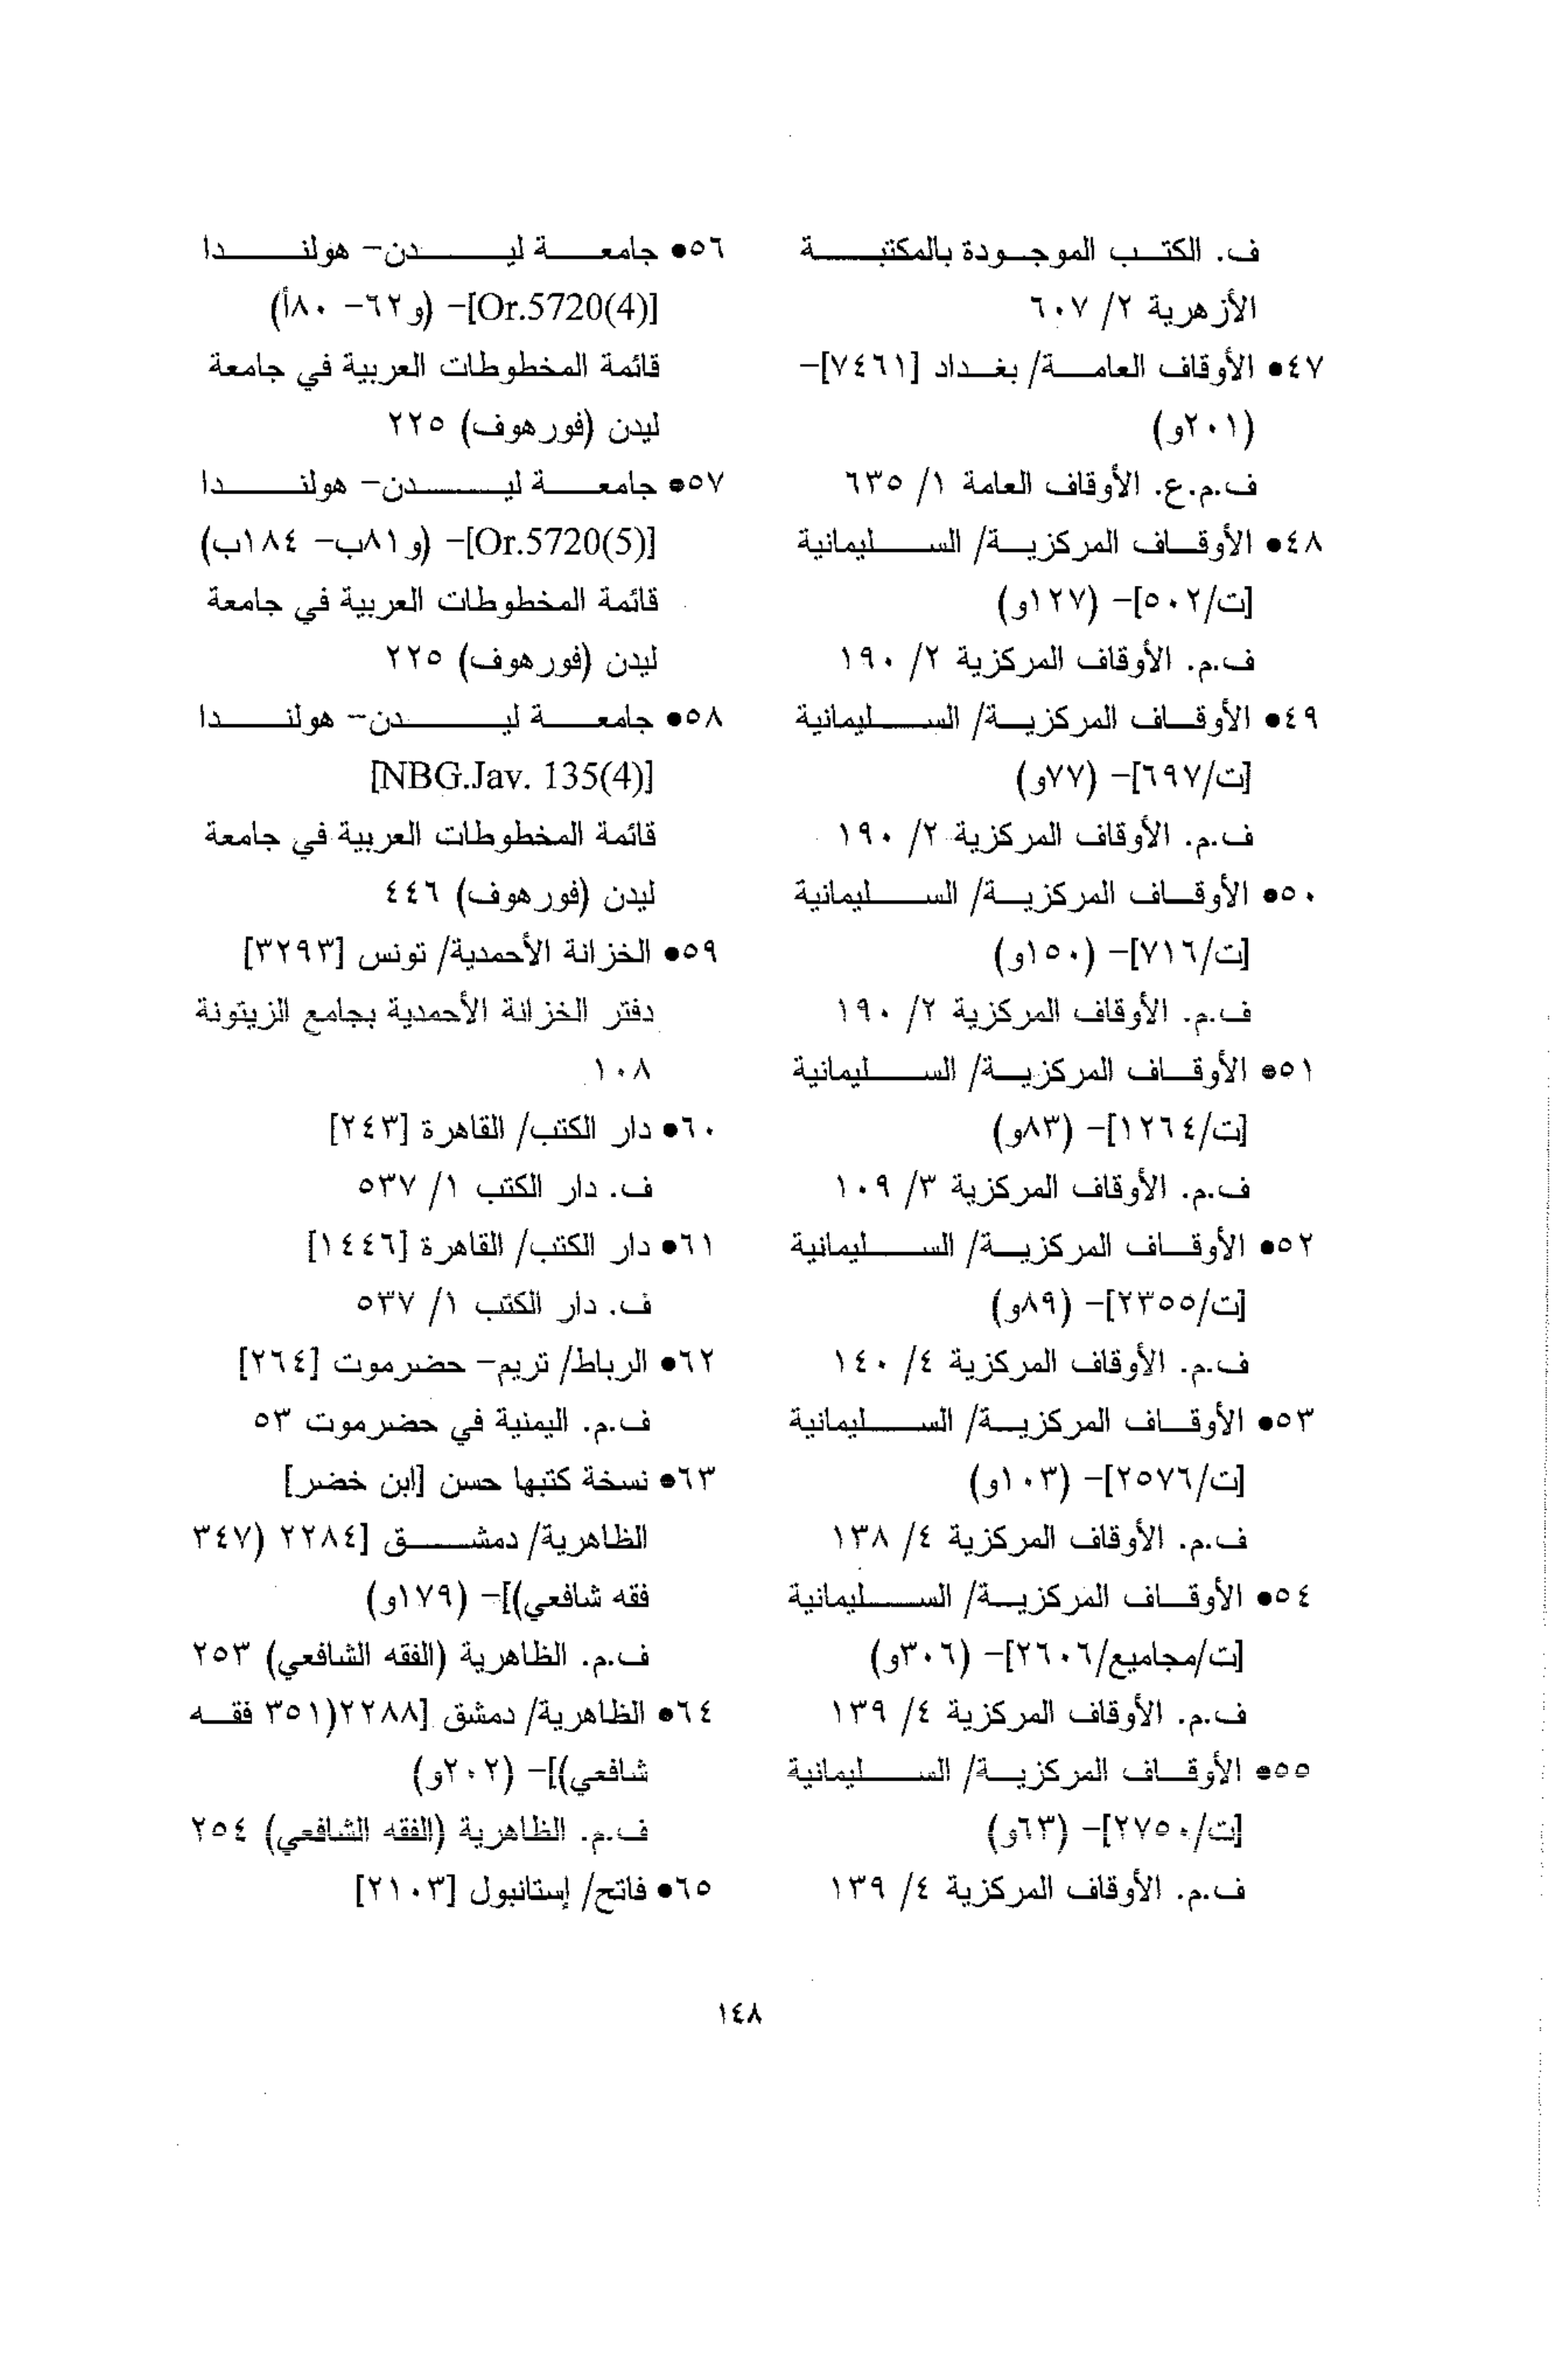 ف. الكتب الموجودة بالمكتبة
الأزهرية ٢/ ٦٠٧
٤٧● الأوقاف العامة/ بغداد [٧٤٦١]-
(٢٠١و)
ف.م.ع. الأوقاف العامة ١/ ٦٣٥
٤٨● الأوقاف المركزية/ السليمانية
[ت/٥٠٢]- (١٢٧و)
ف.م. الأوقاف المركزية ٢/ ١٩٠
٤٩● الأوقاف المركزية/ السليمانية
[ت/٦٩٧]- (٧٧و)
ف.م. الأوقاف المركزية ٢/ ١٩٠
٥٠● الأوقاف المركزية/ السليمانية
[ت/٧١٦]- (١٥٠و)
ف.م. الأوقاف المركزية ٢/ ١٩٠
٥١● الأوقاف المركزية/ السليمانية
[ت/١٢٦٤]- (٨٣و)
ف.م. الأوقاف المركزية ٣/ ١٠٩
٥٢● الأوقاف المركزية/ السليمانية
[ت/٢٣٥٥]- (٨٩و)
ف.م. الأوقاف المركزية ٤/ ١٤٠
٥٣● الأوقاف المركزية/ السليمانية
[ت/٢٥٧٦]- (١٠٣و)
ف.م. الأوقاف المركزية ٤/ ١٣٨
٥٤● الأوقاف المركزية/ السليمانية
[ت/مجاميع/٢٦٠٦]- (٣٠٦و)
ف.م. الأوقاف المركزية ٤/ ١٣٩
٥٥● الأوقاف المركزية/ السليمانية
[ت/٢٧٥٠]- (٦٣و)
ف.م. الأوقاف المركزية ٤/ ١٣٩
٥٦● جامعة ليدن- هولندا
[Or.5720(4)]- (و٦٢- ٨٠أ)
قائمة المخطوطات العربية في جامعة
ليدن (فورهوف) ٢٢٥
٥٧● جامعة ليدن- هولندا
[Or.5720(5)]- (و٨١ب- ١٨٤ب)
قائمة المخطوطات العربية في جامعة
ليدن (فورهوف) ٢٢٥
٥٨● جامعة ليدن- هولندا
[NBG.Jav. 135(4)]
قائمة المخطوطات العربية في جامعة
ليدن (فورهوف) ٤٤٦
٥٩● الخزانة الأحمدية/ تونس [٣٢٩٣]
دفتر الخزانة الأحمدية بجامع الزيتونة
١٠٨
٦٠● دار الكتب/ القاهرة [٢٤٣]
ف. دار الكتب ١/ ٥٣٧
٦١● دار الكتب/ القاهرة [١٤٤٦]
ف. دار الكتب ١/ ٥٣٧
٦٢● الرباط/ تريم- حضرموت [٢٦٤]
ف.م. اليمنية في حضرموت ٥٣
٦٣● نسخة كتبها حسن [ابن خضر]
الظاهرية/ دمشق [٢٢٨٤ (٣٤٧
فقه شافعي)]- (١٧٩و)
ف.م. الظاهرية (الفقه الشافعي) ٢٥٣
٦٤● الظاهرية/ دمشق [٢٢٨٨(٣٥١ فقه
شافعي)]- (٢٠٢و)
ف.م. الظاهرية (الفقه الشافعي) ٢٥٤
٦٥● فاتح/ إستانبول [٢١٠٣]
١٤٨